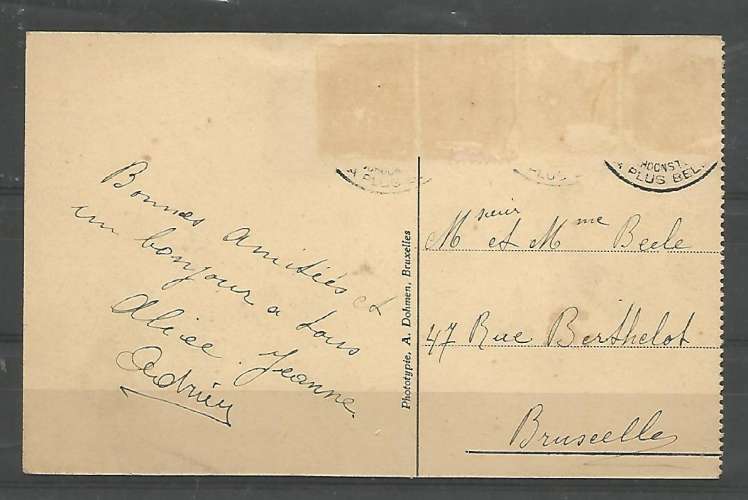 Bonnes amitiés et
un bonjour a tous
Alice. Jeanne
Adrien
Phototypie, A. Dohmen, Bruxelles
HOONST
A PLUS BEL
PLUS
A PLUS BE
Msieur et Mme Beele
47 Rue Berthelot
Bruxelles